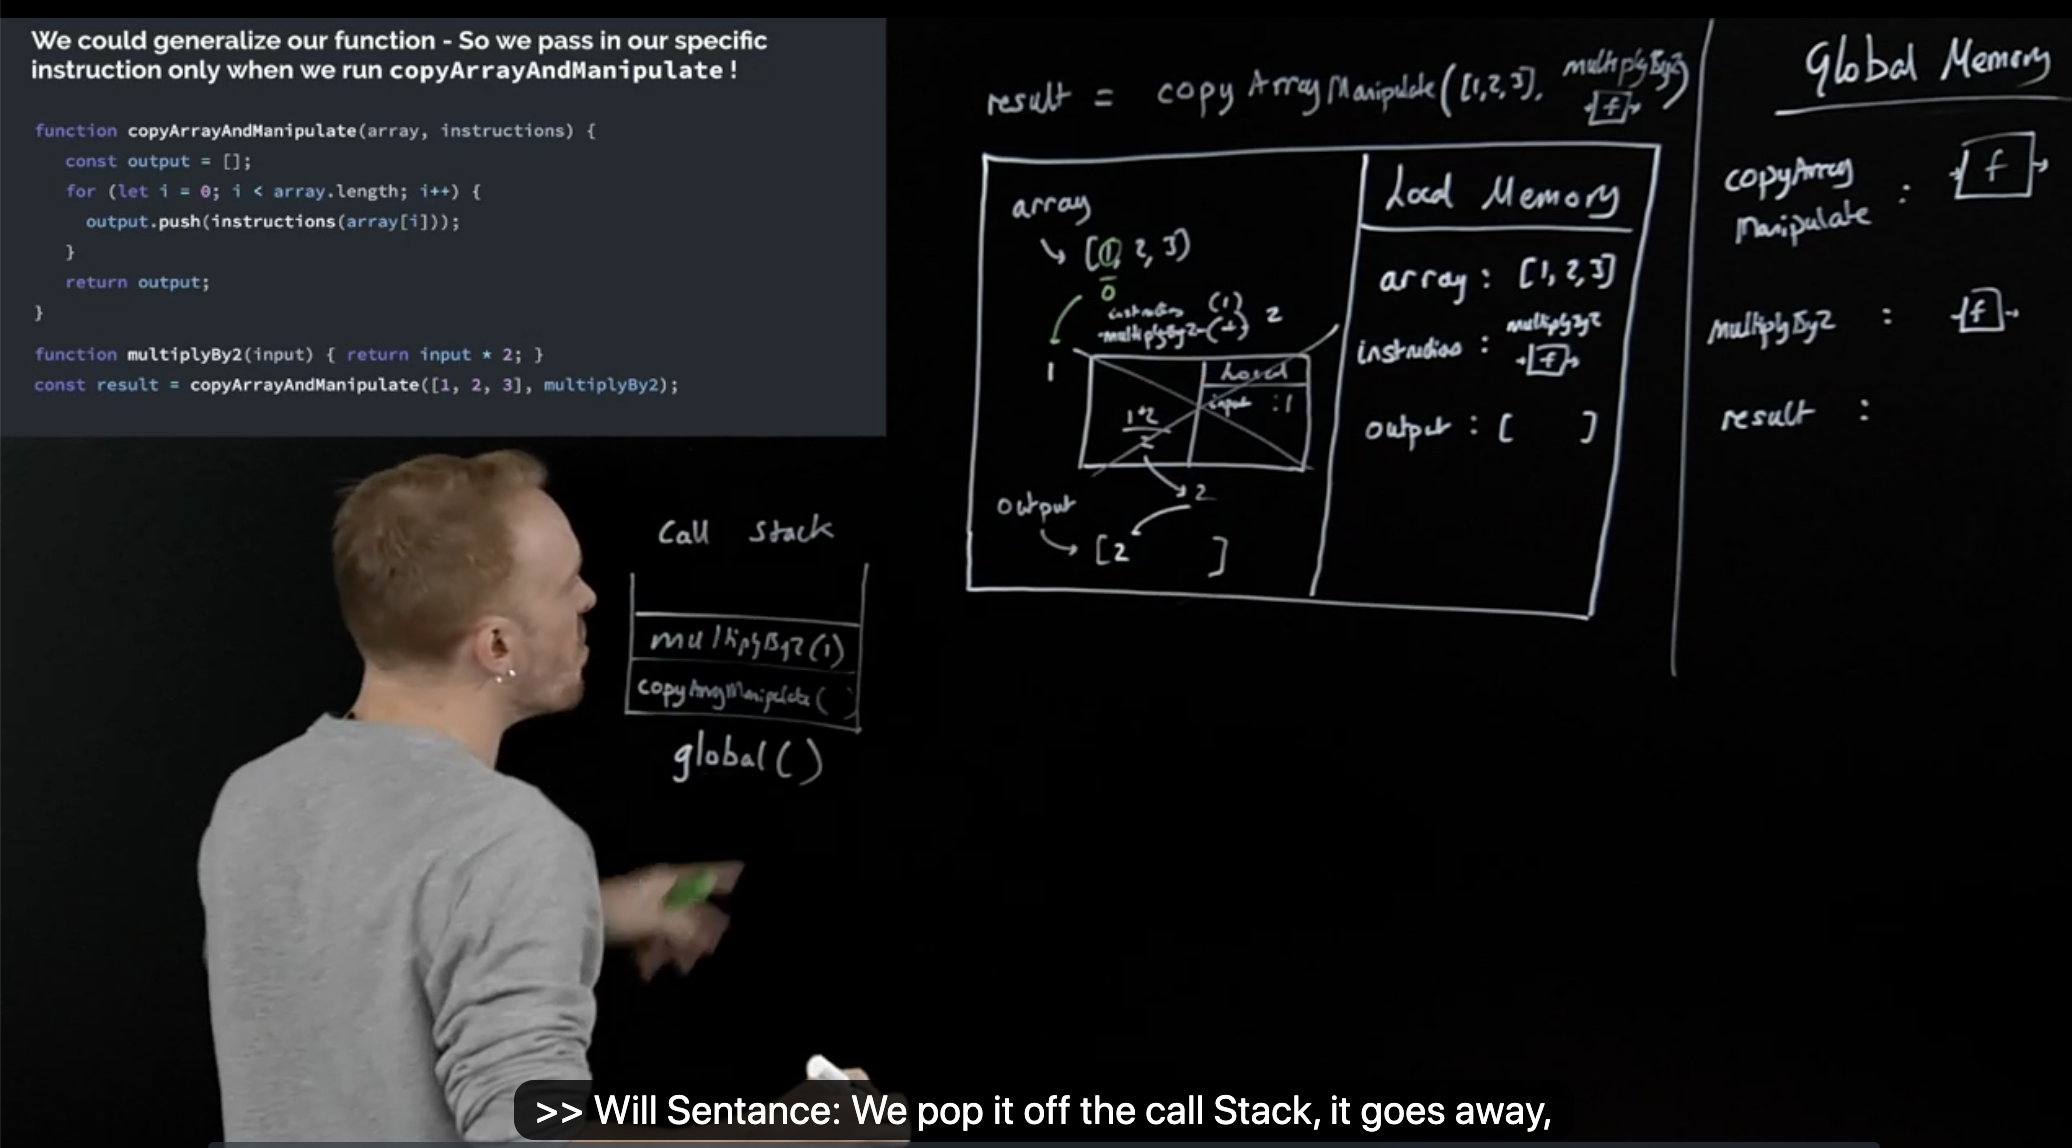 We could generalize our function - So we pass in our specific
instruction only when we run copyArrayAndManipulate !
function copyArrayAndManipulate(array, instructions) {
const output = [];
for (let i = 0; i < array.length; i++) {
output.push(instructions(array[i]));
}
return output;
}
function multiplyBy2(input) { return input * 2; }
const result = copyArrayAndManipulate([1, 2, 3], multiplyBy2);
result = copyArrayManipulate([1,2,3], multiplyBy2)
f
array
[1, 2, 3]
0
1
(1)
multiplyBy2 2
Local
input : 1
1*2
2
2
output
[2 ]
Local Memory
array : [1,2,3]
multiplyBy2
instructions : f
output : [ ]
Global Memory
copyArray
Manipulate : f
multiplyBy2 : f
result :
Call Stack
multiplyBy2(1)
copyArrayManipulate( )
global()
>> Will Sentance: We pop it off the call Stack, it goes away,